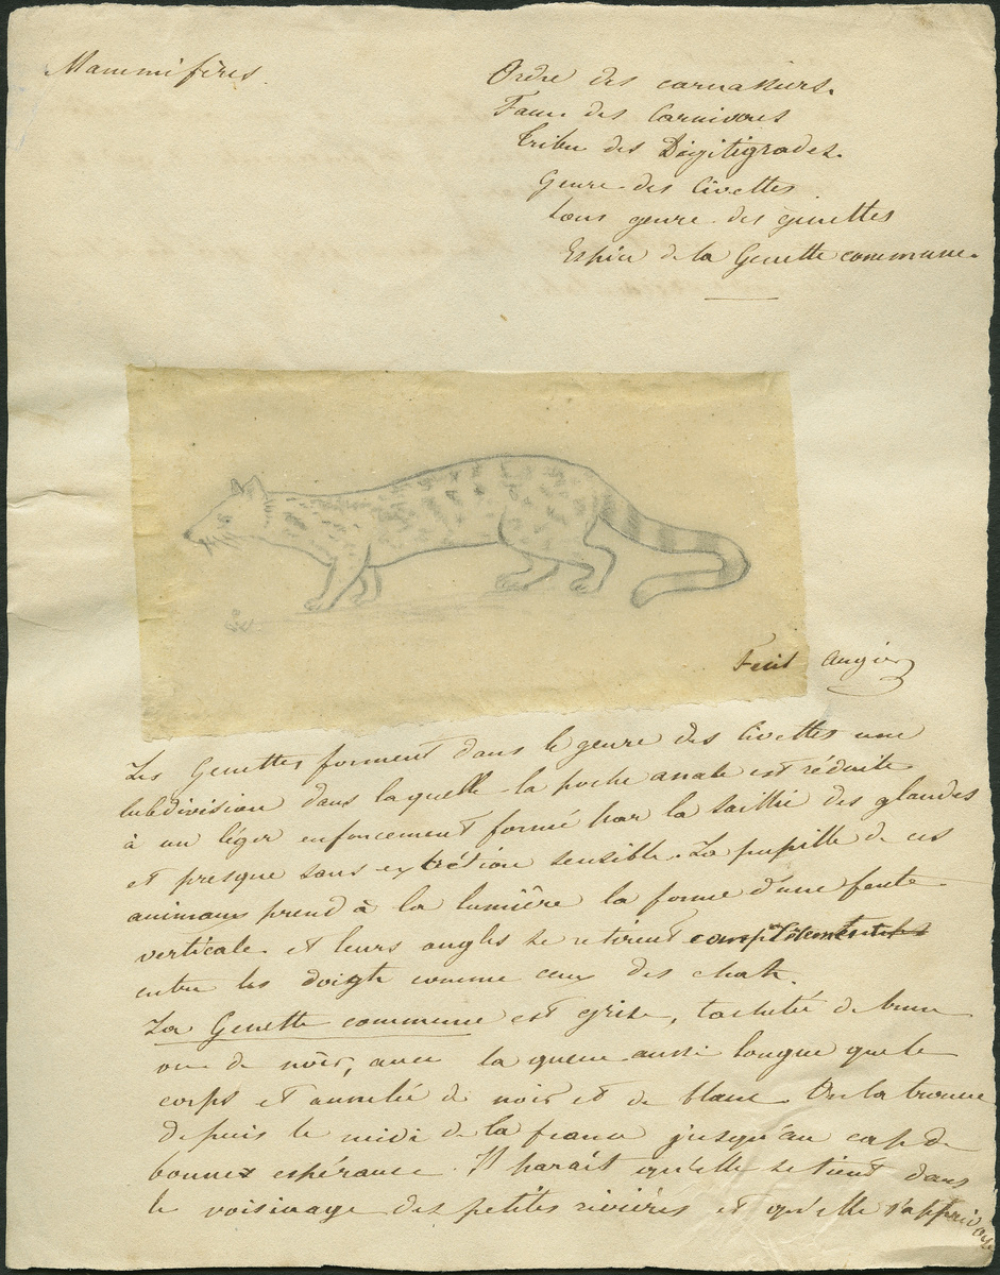 Mammifères.
Ordre des carnassiers.
Fame des Carnivores
Tribu des Digitigrades.
Genre des Civettes
Sous genre des genettes
Espèce de la Genette commune.
Fecit Augier
Les Genettes forment dans le genre des Civettes une
subdivision dans laquelle la poche anale est réduite
à un léger enfoncement formé par la saillie des glandes
et presque sans excrétion sensible. La pupille de ces
animaux prend à la lumière la forme d'une fente
verticale et leurs ongles se retirent
entre les doigts comme ceux des chats.
La Genette commune est grise, tachetée de brun
ou de noir, avec la queue aussi longue que le
corps et annelée de noir et de blanc. On la trouve
depuis le midi de la france jusqu'au cap de
bonnes espérance. Il parait qu'elle se tient dans
le voisinage des petites rivières et qu'elle s'apprivoise